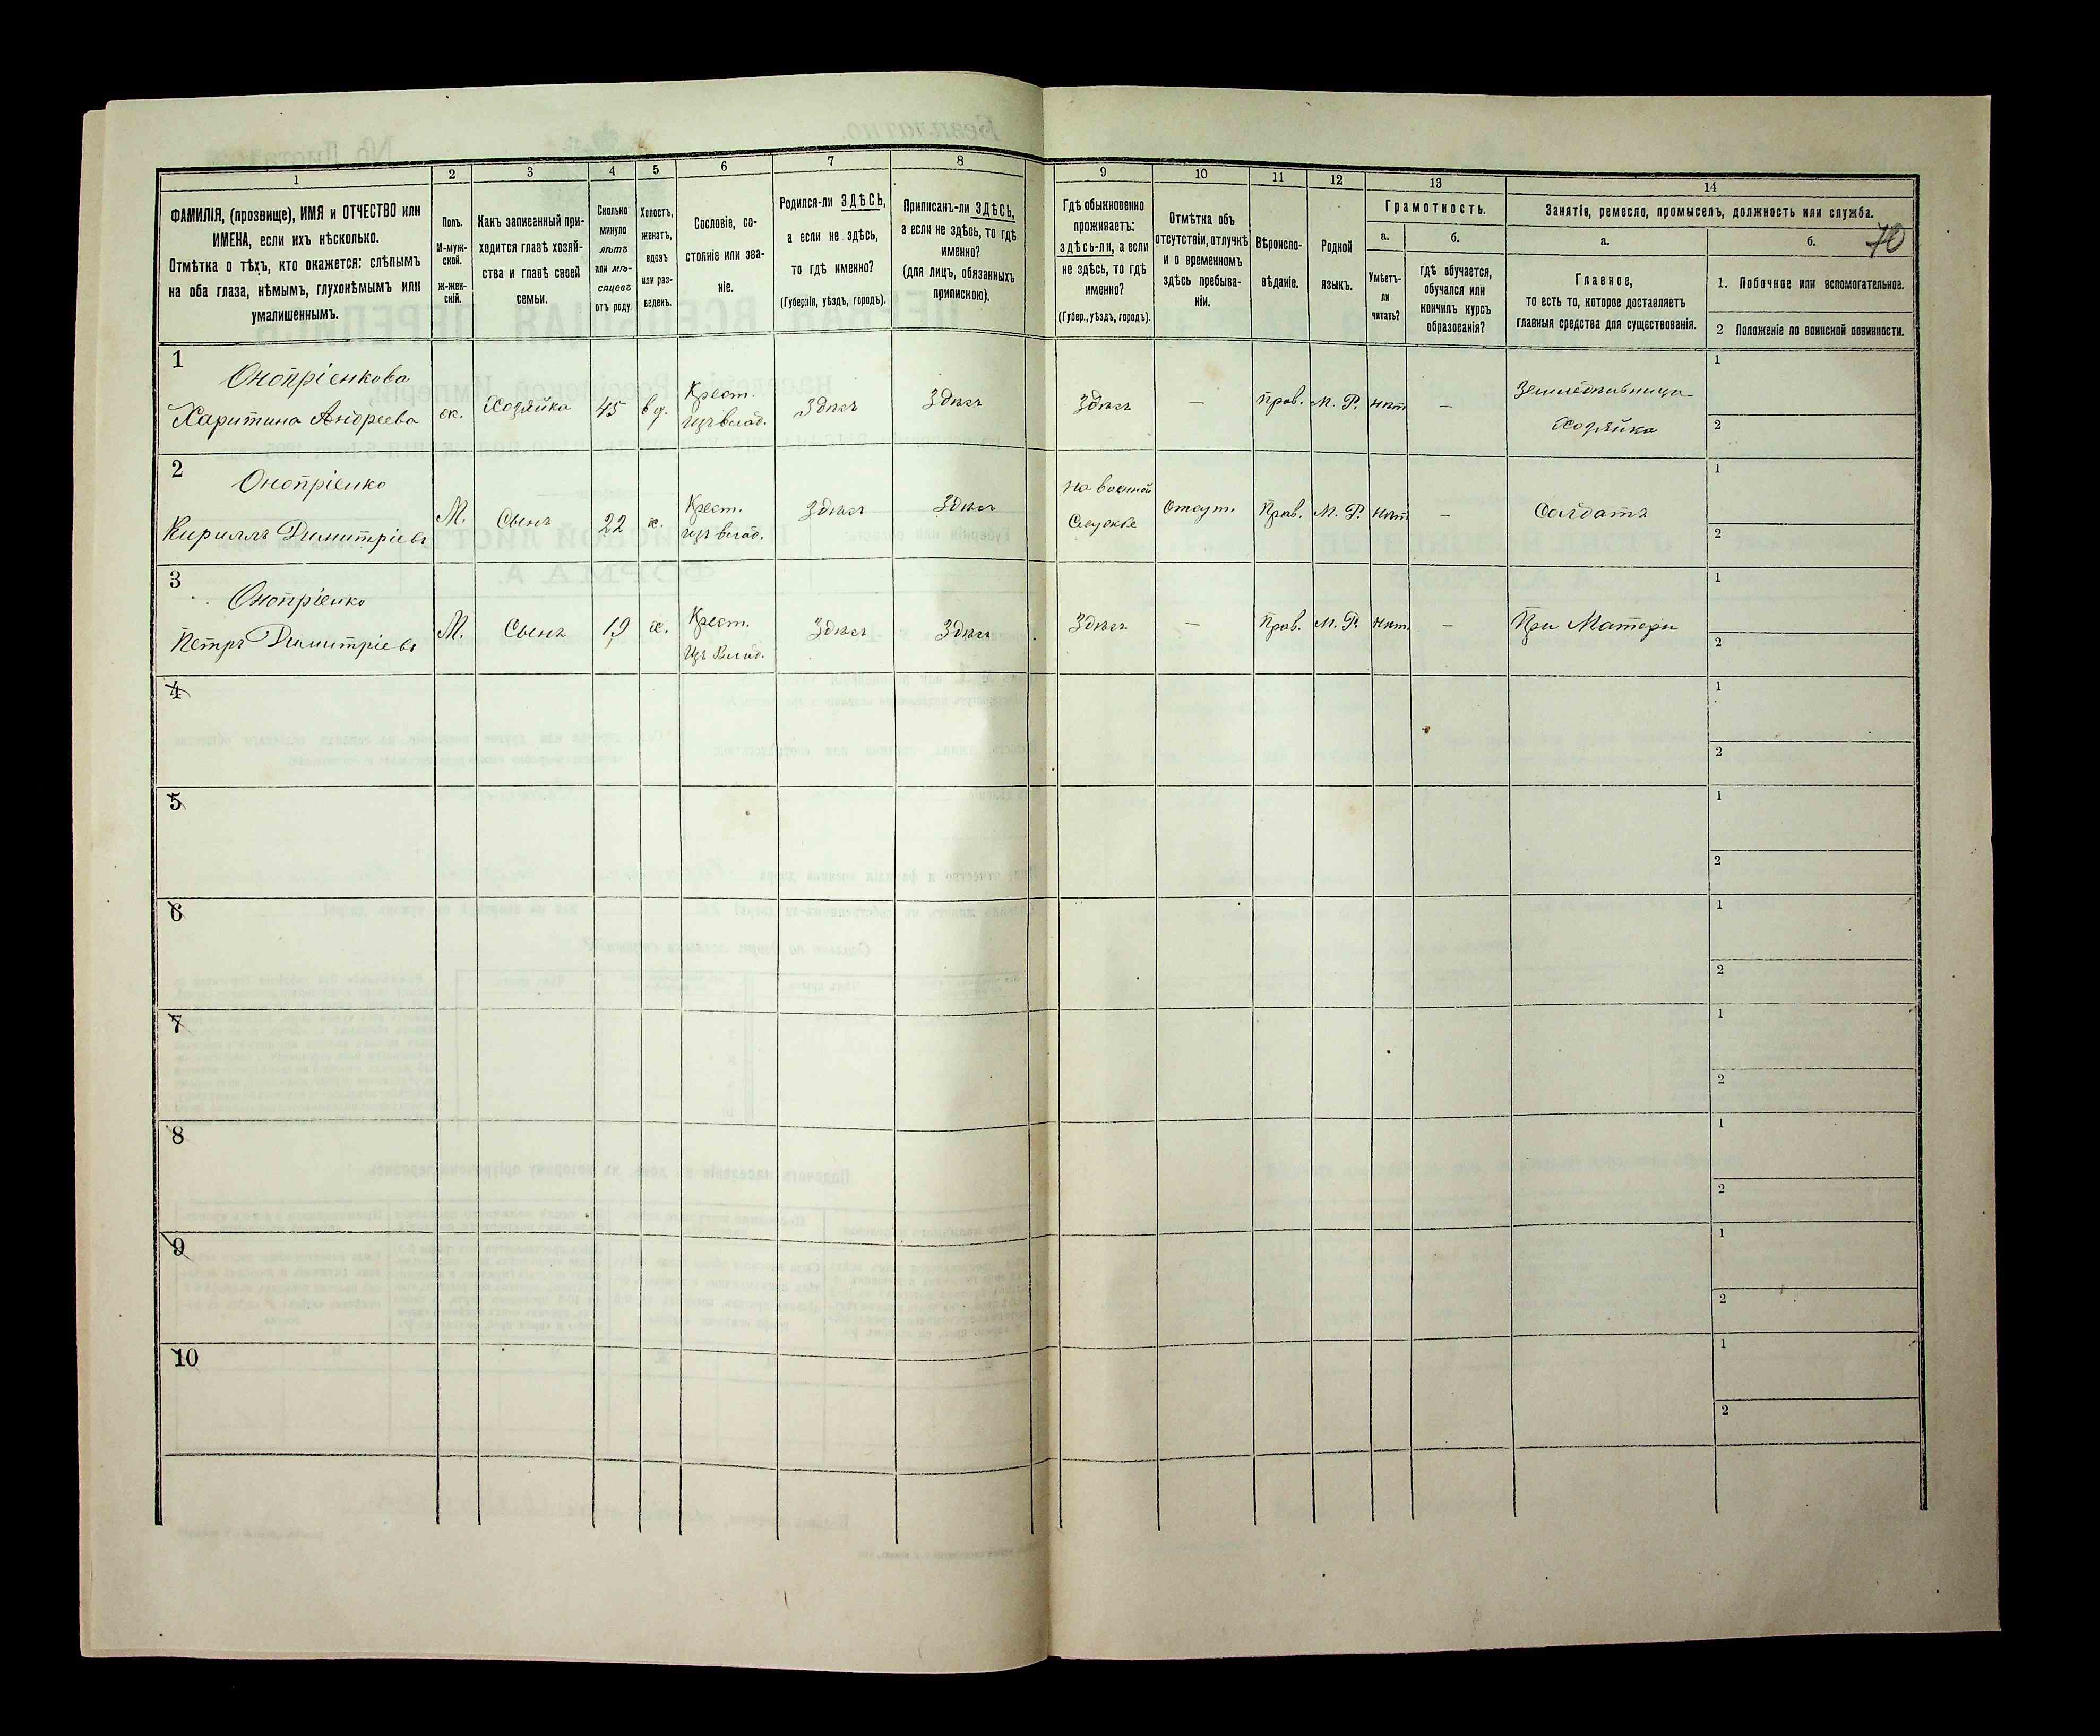 1
2
3
4
5
6
7
8
9
10
11
12
13
14
ФАМИЛІЯ, (прозвище), ИМЯ и ОТЧЕСТВО или
ИМЕНА, если ихъ нѣсколько.
Отмѣтка о тѣхъ, кто окажется: слѣпымъ
на оба глаза, нѣмымъ, глухонѣмымъ или
умалишеннымъ.
Полъ.
М-муж-
ской.
Ж-жен-
скій.
Какъ записанный при-
ходится главѣ хозяй-
ства и главѣ своей
семьи.
Сколько
минуло
лѣтъ
или мѣ-
сяцевъ
отъ роду.
Холостъ,
женатъ,
вдовъ
или раз-
веденъ.
Сословіе, со-
стояніе или зва-
ніе.
Родился-ли ЗДѢСЬ,
а если не здѣсь,
то гдѣ именно?
(Губернія, уѣздъ, городъ).
Приписанъ-ли ЗДѢСЬ,
а если не здѣсь, то гдѣ
именно?
(для лицъ, обязанныхъ
припискою).
Гдѣ обыкновенно
проживаетъ:
здѣсь-ли, а если
не здѣсь, то гдѣ
именно?
(Губер., уѣздъ, городъ).
Отмѣтка объ
отсутствіи, отлучкѣ
и о временномъ
здѣсь пребыва-
ніи.
Вѣроиспо-
вѣданіе.
Родной
языкъ.
Грамотность.
а.
Умѣетъ-
ли
читать?
б.
гдѣ обучается,
обучался или
кончилъ курсъ
образованія?
Занятіе, ремесло, промыселъ, должность или служба.
70
а.
Главное,
то есть то, которое доставляетъ
главныя средства для существованія.
б.
1. Побочное или вспомогательное.
2 Положеніе по воинской повинности.
1
Онопріенкова
Харитина Андреева
ж.
Хозяйка
45
вд.
Крест.
изъ влад.
Здѣсь
Здѣсь
Здѣсь
—
Прав.
М. Р.
нѣт
—
Хозяйка
1
2
2
Онопріенко
Кириллъ Димитріевъ
М.
Сынъ
22
х.
Крест.
изъ влад.
Здѣсь
Здѣсь
на военной
Службе
Отсут.
Прав.
М. Р.
нѣт
—
Солдатъ
1
2
3
Онопріенко
Петръ Димитріевъ
М.
Сынъ
19
х.
Крест.
Изъ Влад.
Здѣсь
Здѣсь
Здѣсь
—
Прав.
М. Р.
нѣт.
—
При Матери
1
2
4
1
2
5
1
2
6
1
2
7
1
2
8
1
2
9
1
2
10
1
2